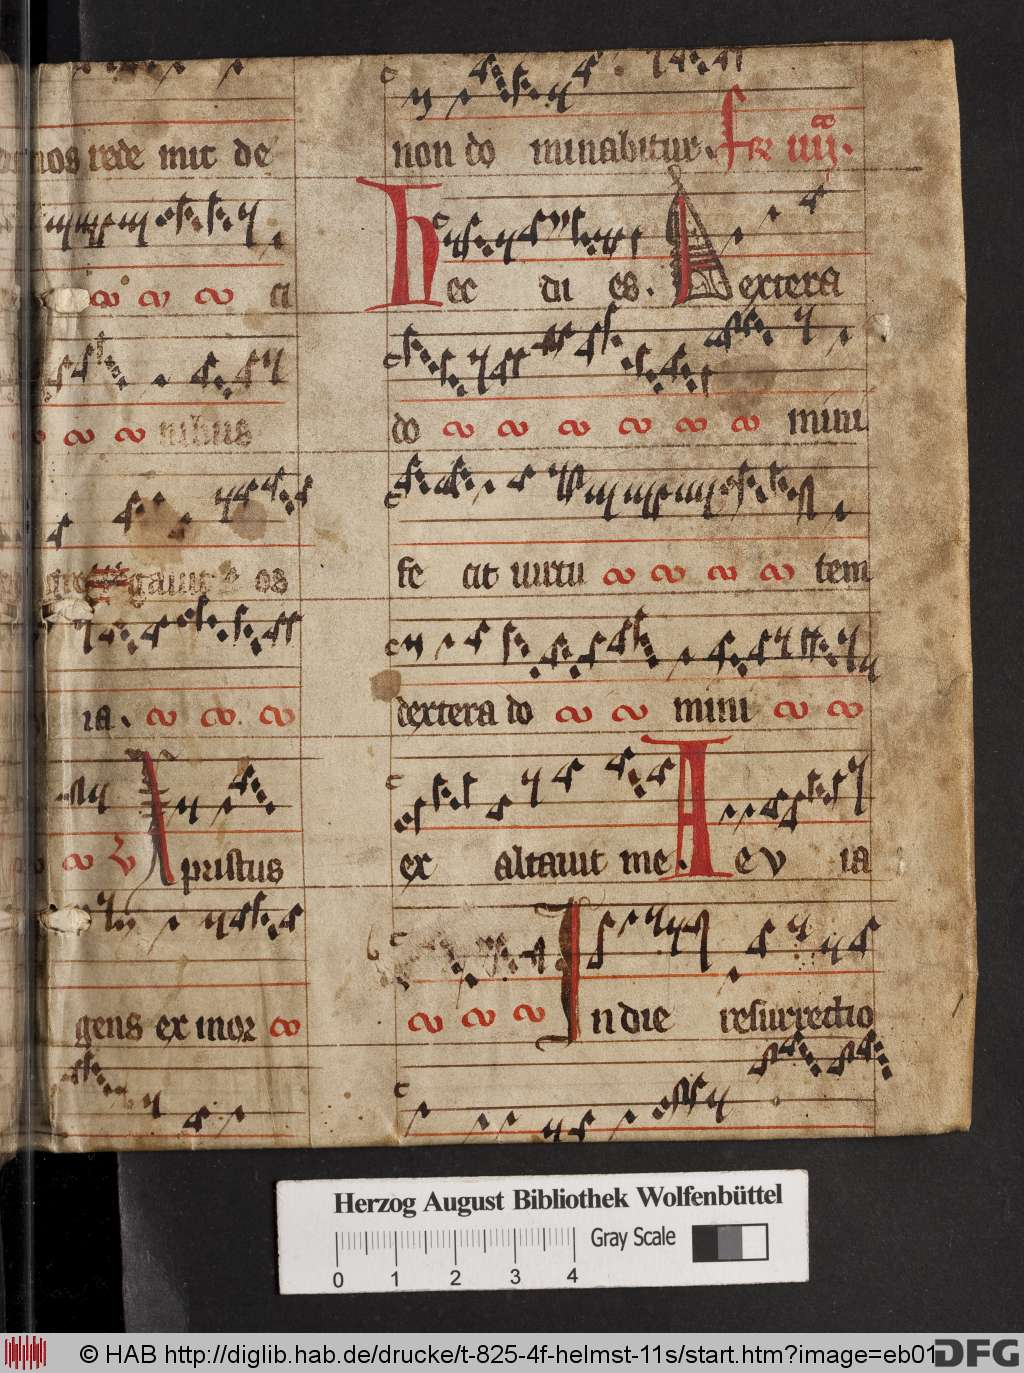 nos rede mit de
ci
nibus
gauit os
ia.
Xpristus
gens ex mor
non do minabitur. fer iiij.
Hec di es. Dextera
do mini
fe cit uirtu tem
dextera do mini
ex altauit me. Ae v ia
In die resurrectio
Herzog August Bibliothek Wolfenbüttel
0 1 2 3 4
Gray Scale
© HAB http://diglib.hab.de/drucke/t-825-4f-helmst-11s/start.htm?image=eb01
DFG